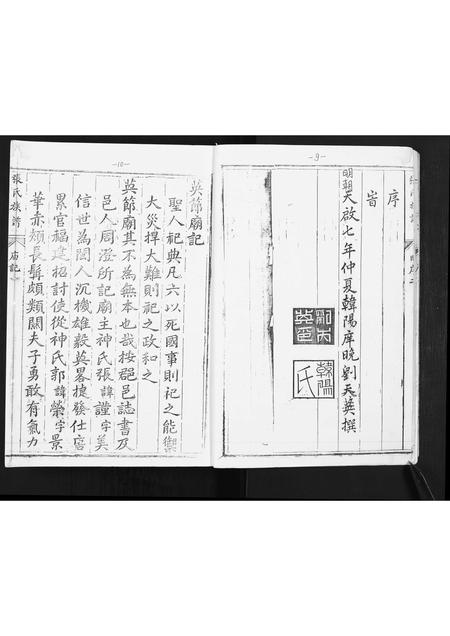 序
旹
明朝天啟七年仲夏韓陽庠晚劉天英撰
-9-
英節廟記
聖人祀典凡六以死國事則祀之能禦
大災捍大難則祀之政和之
英節廟其不為無本也哉按郡邑誌書及
邑人周澄所記廟主神氏張諱謹字美
信世為閩人沉機雄毅英畧捷發仕唐
累官福建招討使從神氏郭諱榮字景
華赤頰長髯頗類關夫子勇敢有氣力
張氏族譜
廟記
-10-